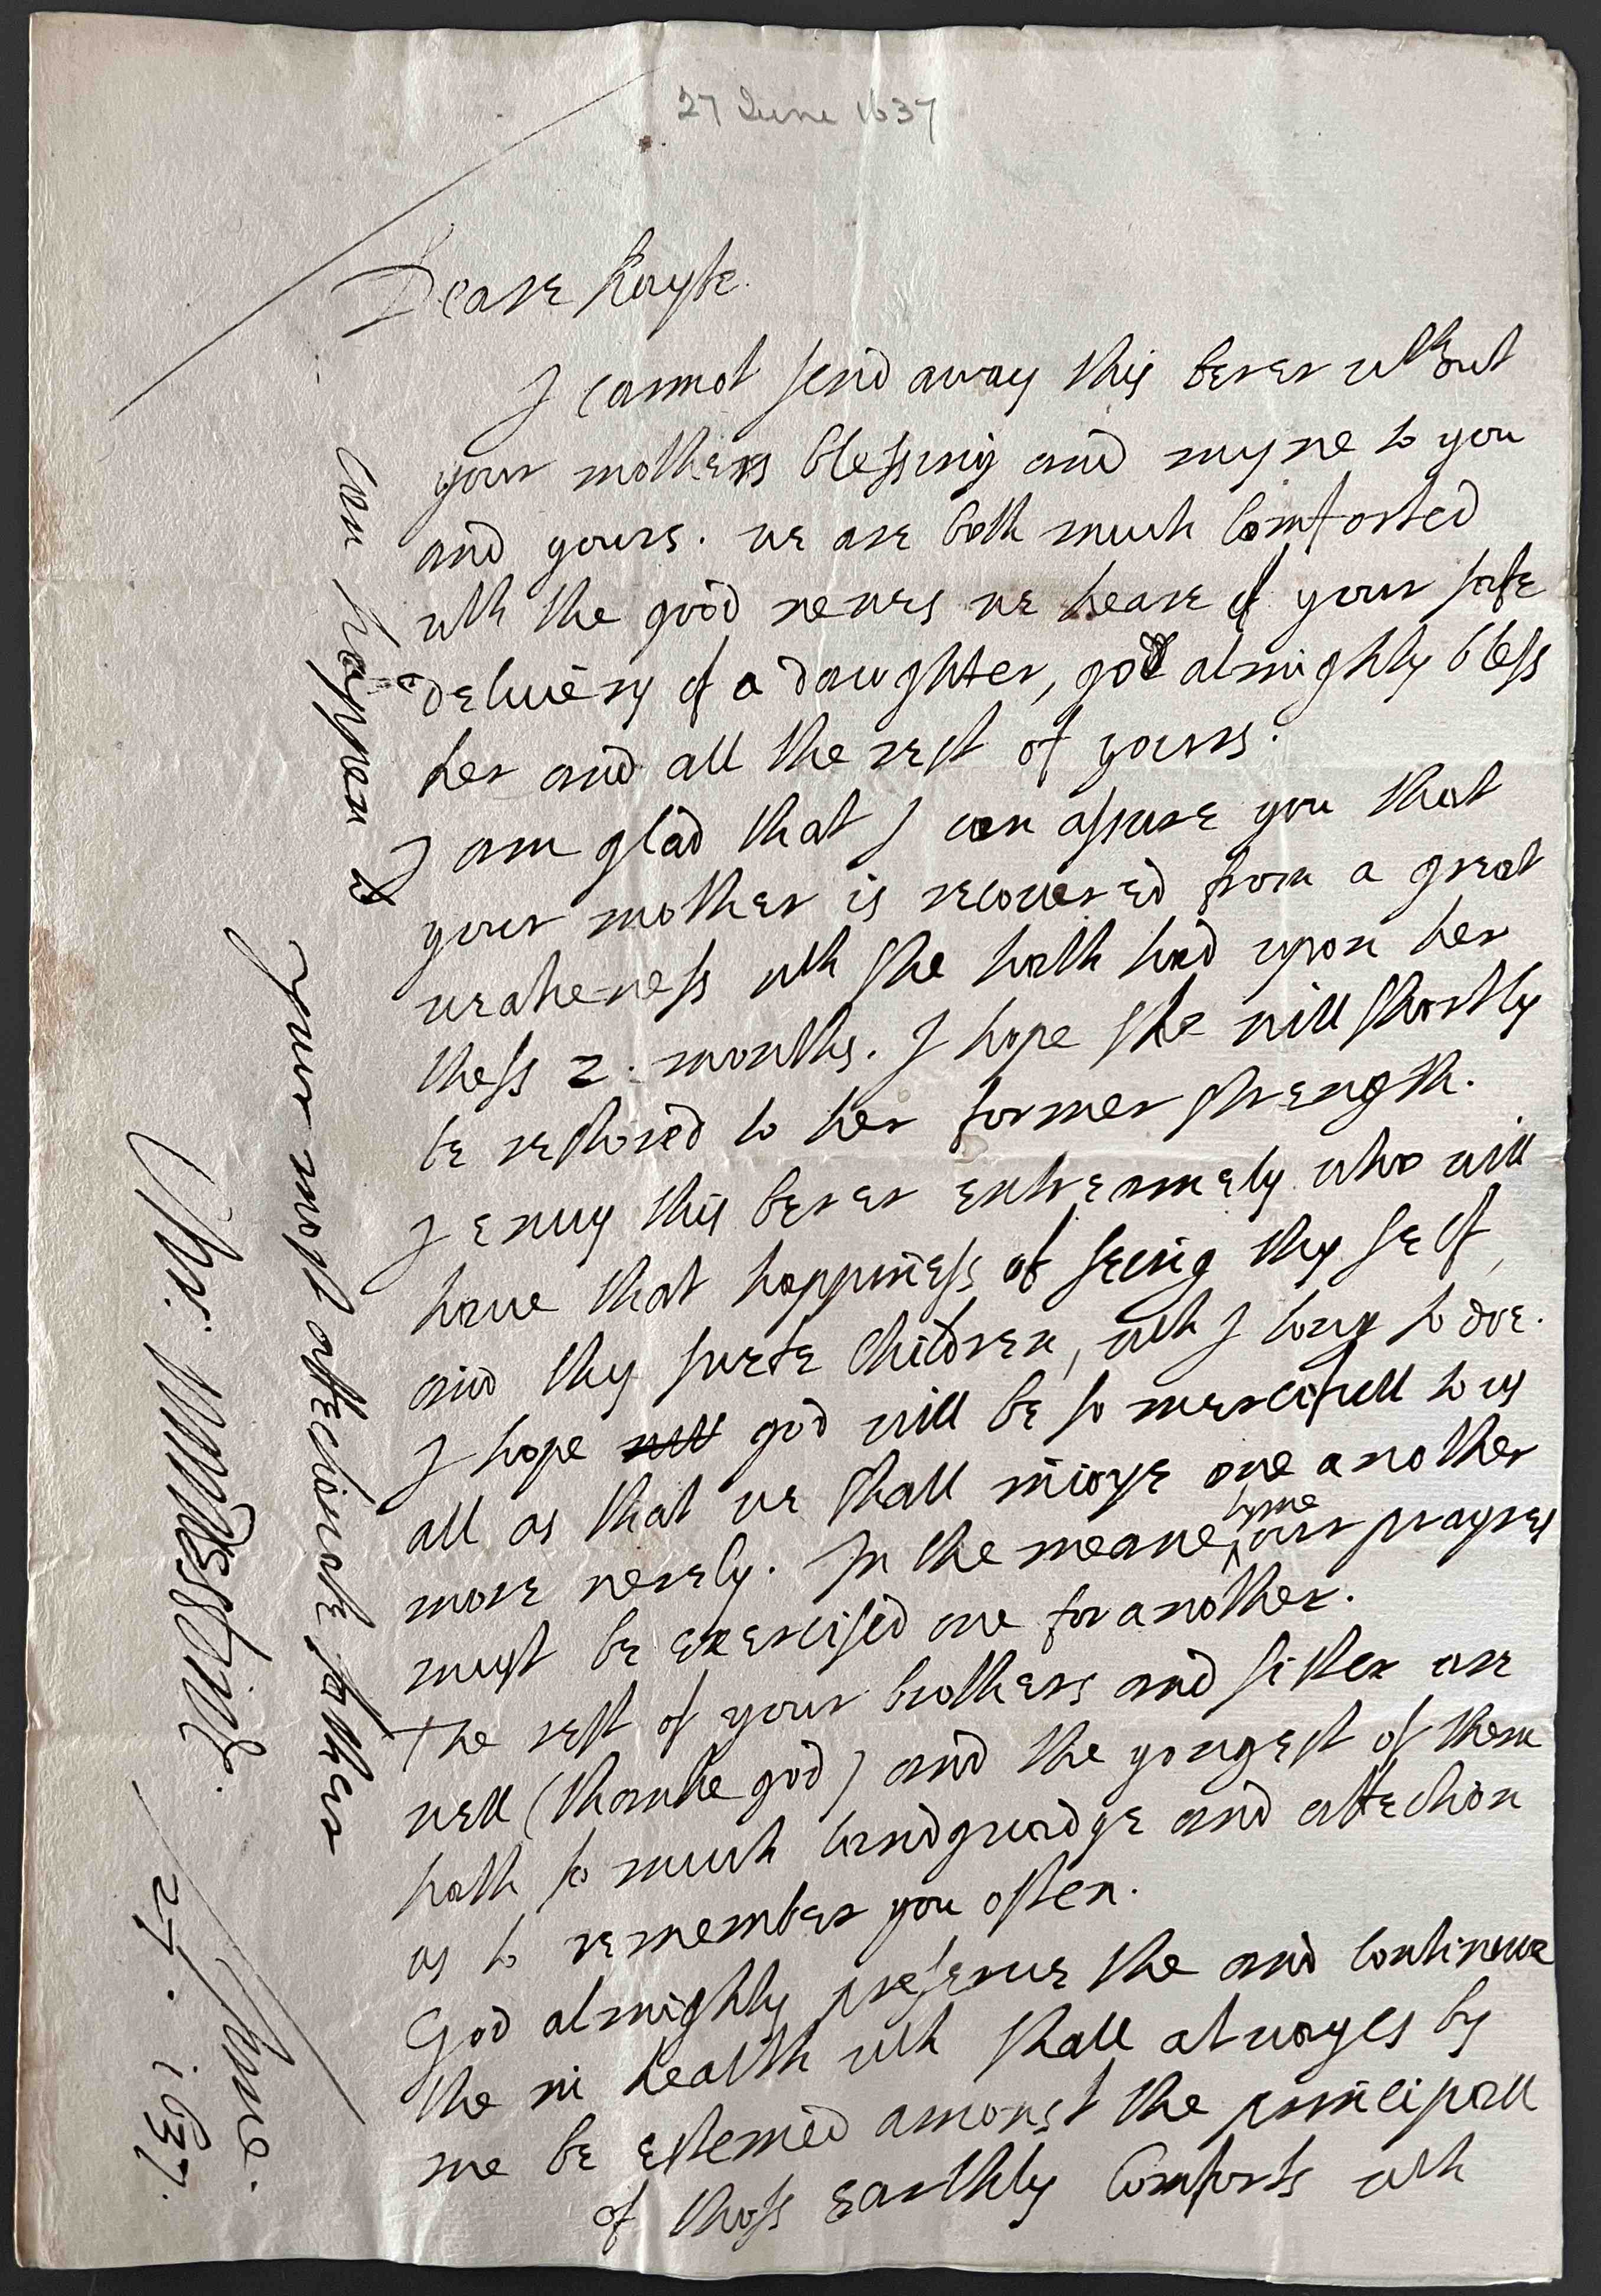 27 June 1637
Deare Kayte.
I cannot send away this berer wthout
your mothers blessing and myne to you
and yours. we are both much Comforted
wth the good newes we heare of your safe
deliuery of a daughter, god almighty bless
her and all the rest of yours.
I am glad that I can assure you that
your mother is recouered from a great
weakeness wch she hath had upon her
thess 2. months. I hope she will shortly
be restored to her former strength.
I enuy this berer extreamely who will
haue that happiness of seeing thy self,
and thy sweete Children, wch I long to doe.
I hope god will be so mercifull to us
all as that we shall inioye one another
more nerely. In the meane tyme our prayres
must be exercised one for another.
The rest of your brothers and sister are
well (thanke god) and the yongest of them
hath so much language and affection
as to remember you often.
God almighty preserue the and Continewe
the in health wch shall alwayes by
me be estemed amonst the principall
of thoss earthly Comforts wch
Can happen to
your most affectionate father
27. June.
1637.